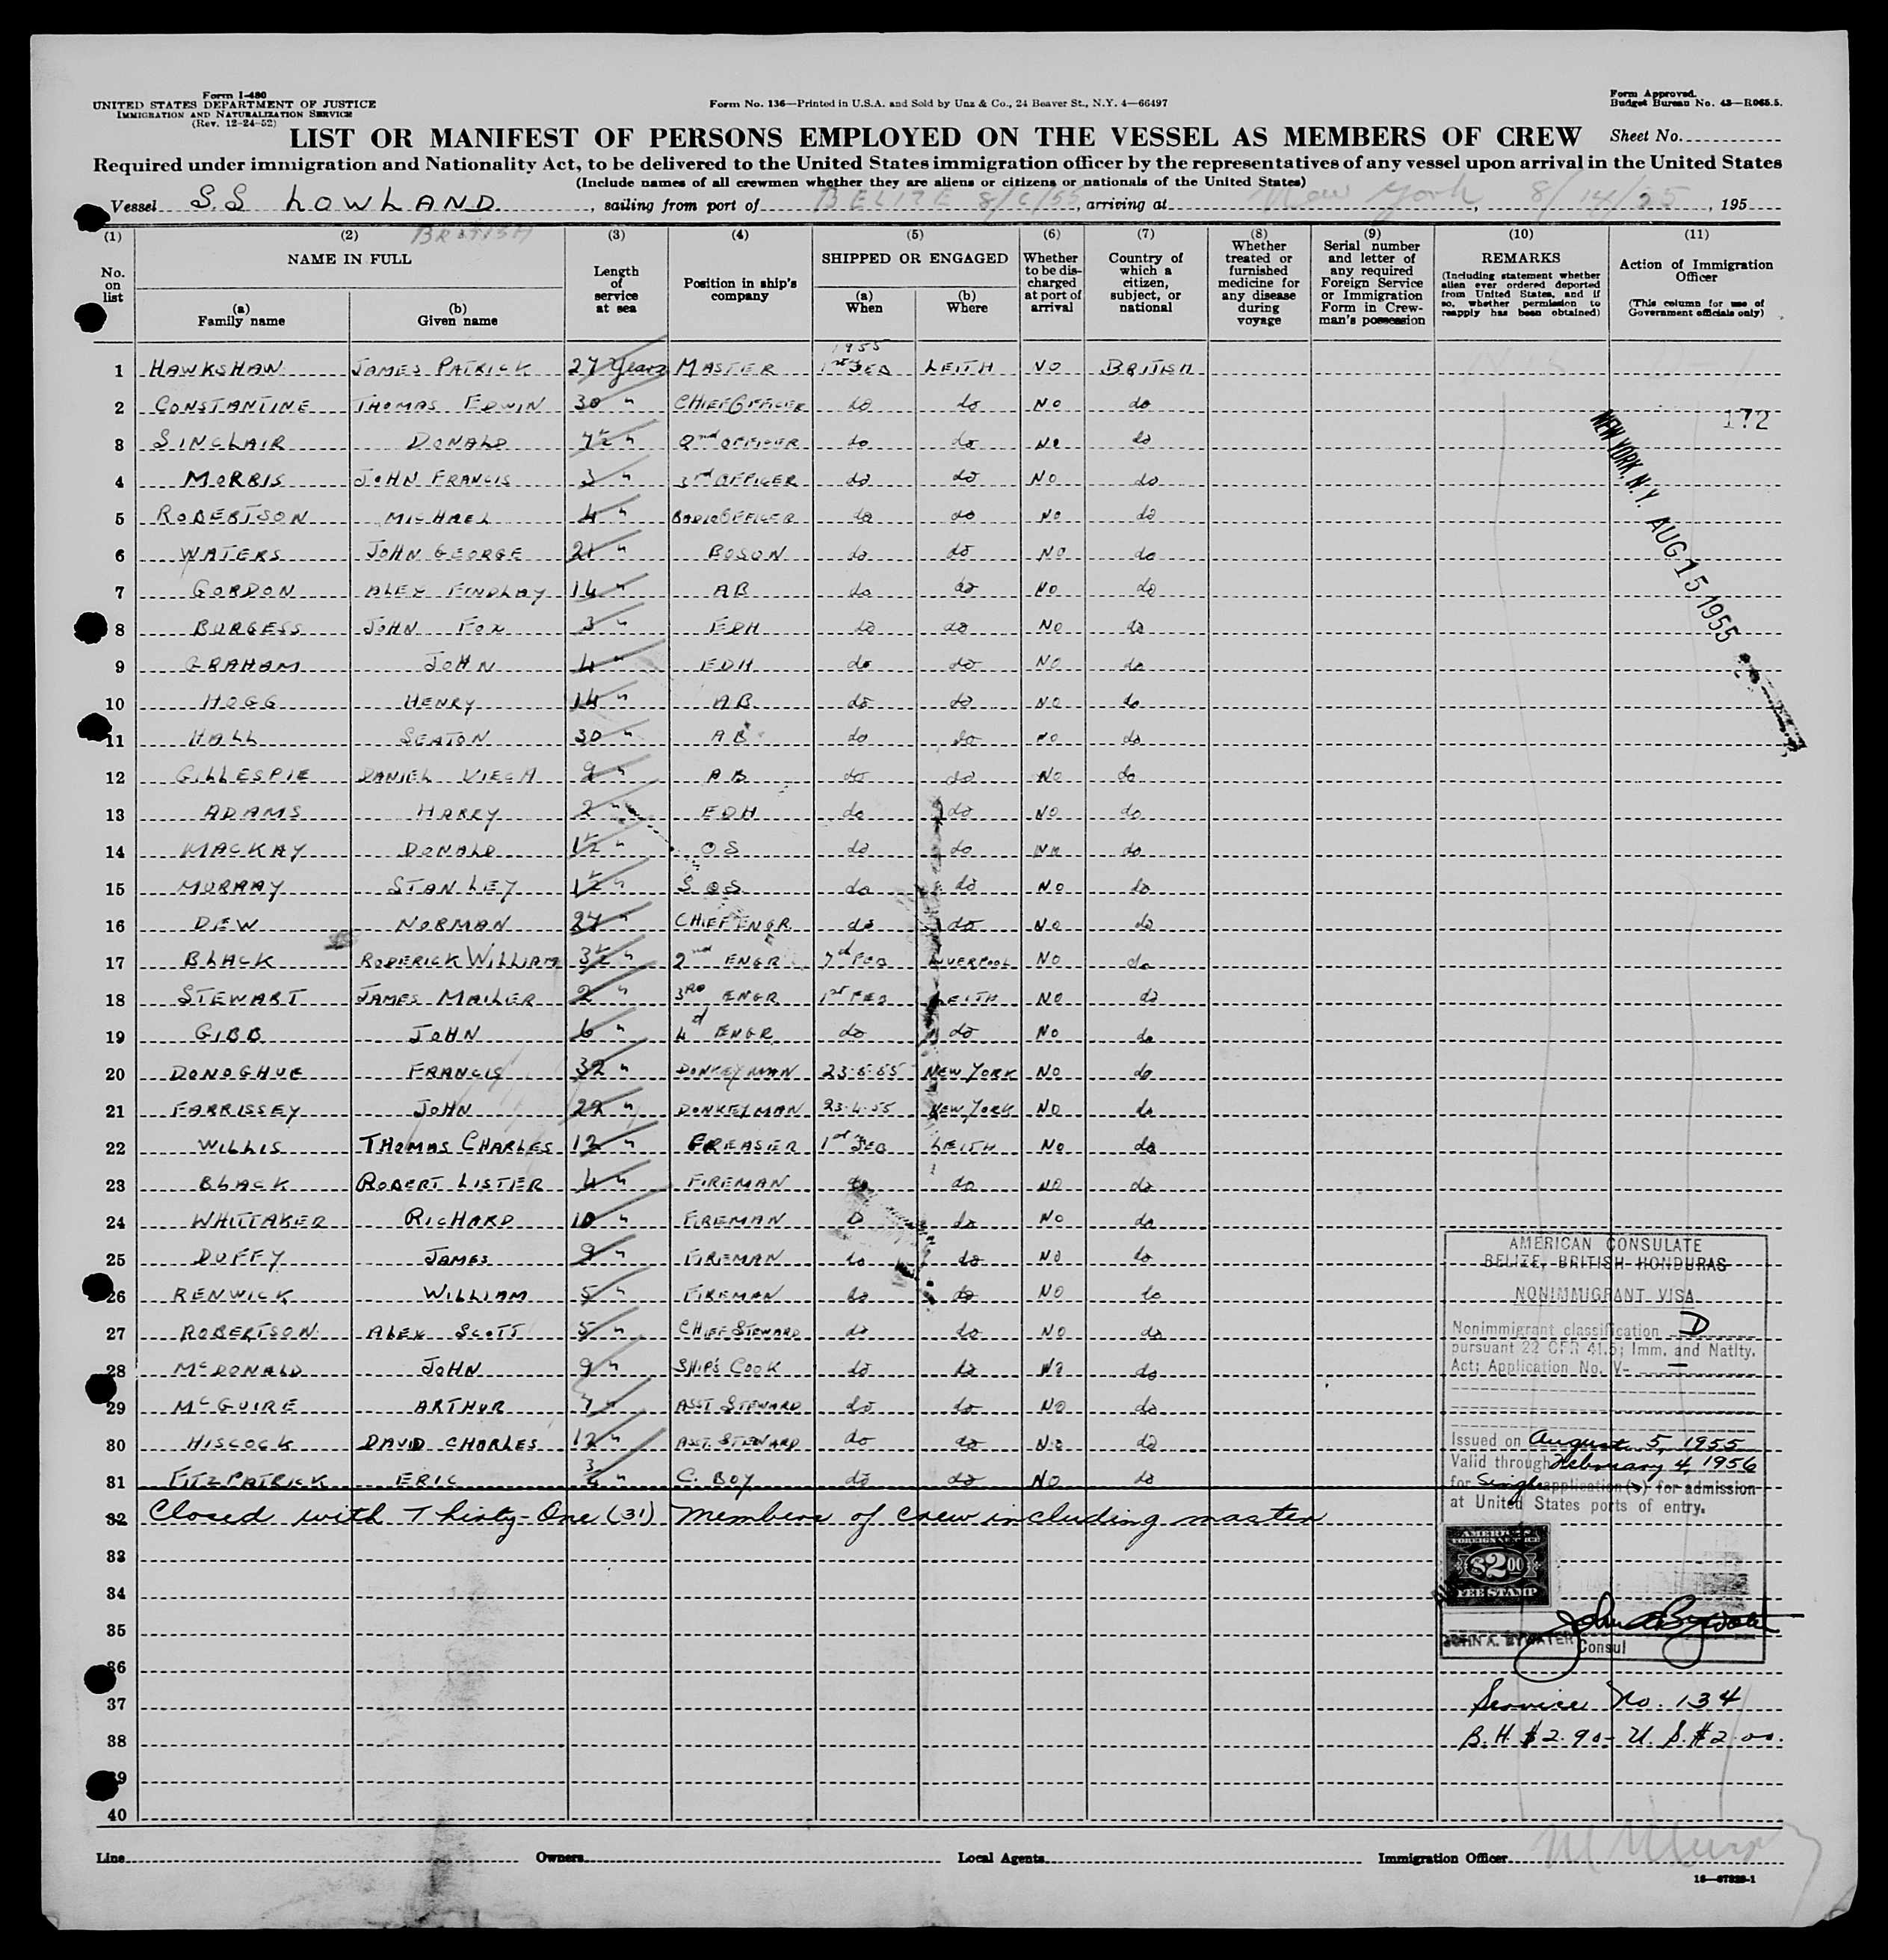 Form I-480
UNITED STATES DEPARTMENT OF JUSTICE
IMMIGRATION AND NATURALIZATION SERVICE
(Rev. 12-24-52)
Form No. 136—Printed in U.S.A. and Sold by Unz & Co., 24 Beaver St., N.Y. 4—66497
Form Approved.
Budget Bureau No. 43—R065.5.
LIST OR MANIFEST OF PERSONS EMPLOYED ON THE VESSEL AS MEMBERS OF CREW Sheet No.
Required under immigration and Nationality Act, to be delivered to the United States immigration officer by the representatives of any vessel upon arrival in the United States
(Include names of all crewmen whether they are aliens or citizens or nationals of the United States)
Vessel S.S LOWLAND, sailing from port of BELIZE 8/6/55, arriving at New York, 8/14/55, 195
BRITISH
(1) (2) (3) (4) (5) (6) (7) (8) (9) (10) (11)
No. on list
NAME IN FULL
(a) Family name
(b) Given name
Length of service at sea
Position in ship's company
SHIPPED OR ENGAGED
(a) When
(b) Where
Whether to be discharged at port of arrival
Country of which a citizen, subject, or national
Whether treated or furnished medicine for any disease during voyage
Serial number and letter of any required Foreign Service or Immigration Form in Crewman's possession
REMARKS
(Including statement whether alien ever ordered deported from United States, and if so, whether permission to reapply has been obtained)
Action of Immigration Officer
(This column for use of Government officials only)
1955
1 HAWKSHAW JAMES PATRICK 27 Years MASTER 1st FEB LEITH NO BRITISH
2 CONSTANTINE THOMAS EDWIN 30 " CHIEF OFFICER do do NO do
172
3 SINCLAIR DONALD 7½ " 2nd OFFICER do do NO do
4 MORRIS JOHN FRANCIS 3 " 3rd OFFICER do do NO do
5 ROBERTSON MICHAEL 4 " RADIO OFFICER do do NO do
6 WATERS JOHN GEORGE 21 " BOSON do do NO do
7 GORDON ALEX FINDLAY 14 " AB do do NO do
8 BURGESS JOHN FOX 3 " EDH do do NO do
9 GRAHAM JOHN 4 " EDH do do NO do
10 HOGG HENRY 14 " AB do do NO do
11 HALL SEATON 30 " AB do do NO do
12 GILLESPIE DANIEL 9 " AB do do NO do
13 ADAMS HARRY 2 " EDH do do NO do
14 MACKAY DONALD 1½ " OS do do NO do
15 MURRAY STANLEY 1½ " S OS do do NO do
16 DEW NORMAN 27 " CHIEF ENGR do do NO do
17 BLACK RODERICK WILLIAM 3½ " 2nd ENGR 7d FEB LIVERPOOL NO do
18 STEWART JAMES MAILER 2 " 3RD ENGR 1st FEB LEITH NO do
19 GIBB JOHN 6 " 4d ENGR do do NO do
20 DONOGHUE FRANCIS 32 " DONKEYMAN 23.5.55 NEW YORK NO do
21 FARRISSEY JOHN 22 " DONKEYMAN 23.4.55 NEW YORK NO do
22 WILLIS THOMAS CHARLES 12 " GREASIER 1st FEB LEITH NO do
23 BLACK ROBERT LISTER 4 " FIREMAN do do NO do
24 WHITTAKER RICHARD 10 " FIREMAN D do NO do
25 DUFFY JAMES 9 " FIREMAN do do NO do
26 RENWICK WILLIAM 5 " FIREMAN do do NO do
27 ROBERTSON ALEX SCOTT 5 " CHIEF STEWARD do do NO do
28 McDONALD JOHN 9 " SHIP'S COOK do do NO do
29 McGUIRE ARTHUR 7 " ASST STEWARD do do NO do
30 HISCOCK DAVID CHARLES 12 " ASST. STEWARD do do NO do
31 FITZPATRICK ERIC ¾ " C. BOY do do NO do
32 Closed with Thirty-One (31) members of crew including master
33
34
35
36
37
38
39
40
NEW YORK, N.Y. AUG 15 1955
AMERICAN CONSULATE
BELIZE, BRITISH HONDURAS
NONIMMIGRANT VISA
Nonimmigrant classification D
pursuant 22 CFR 41.5; Imm. and Natlty.
Act; Application No. V- —
Issued on August 5, 1955
Valid through February 4, 1956
for Single application(s) for admission
at United States ports of entry.
AMERICAN
FOREIGN SERVICE
$2.00
FEE STAMP
JOHN A. BYWATER
Consul
Service No. 134
B.H. $2.90 - U.S. $2.00.
Line Owners Local Agents Immigration Officer
16—67829-1